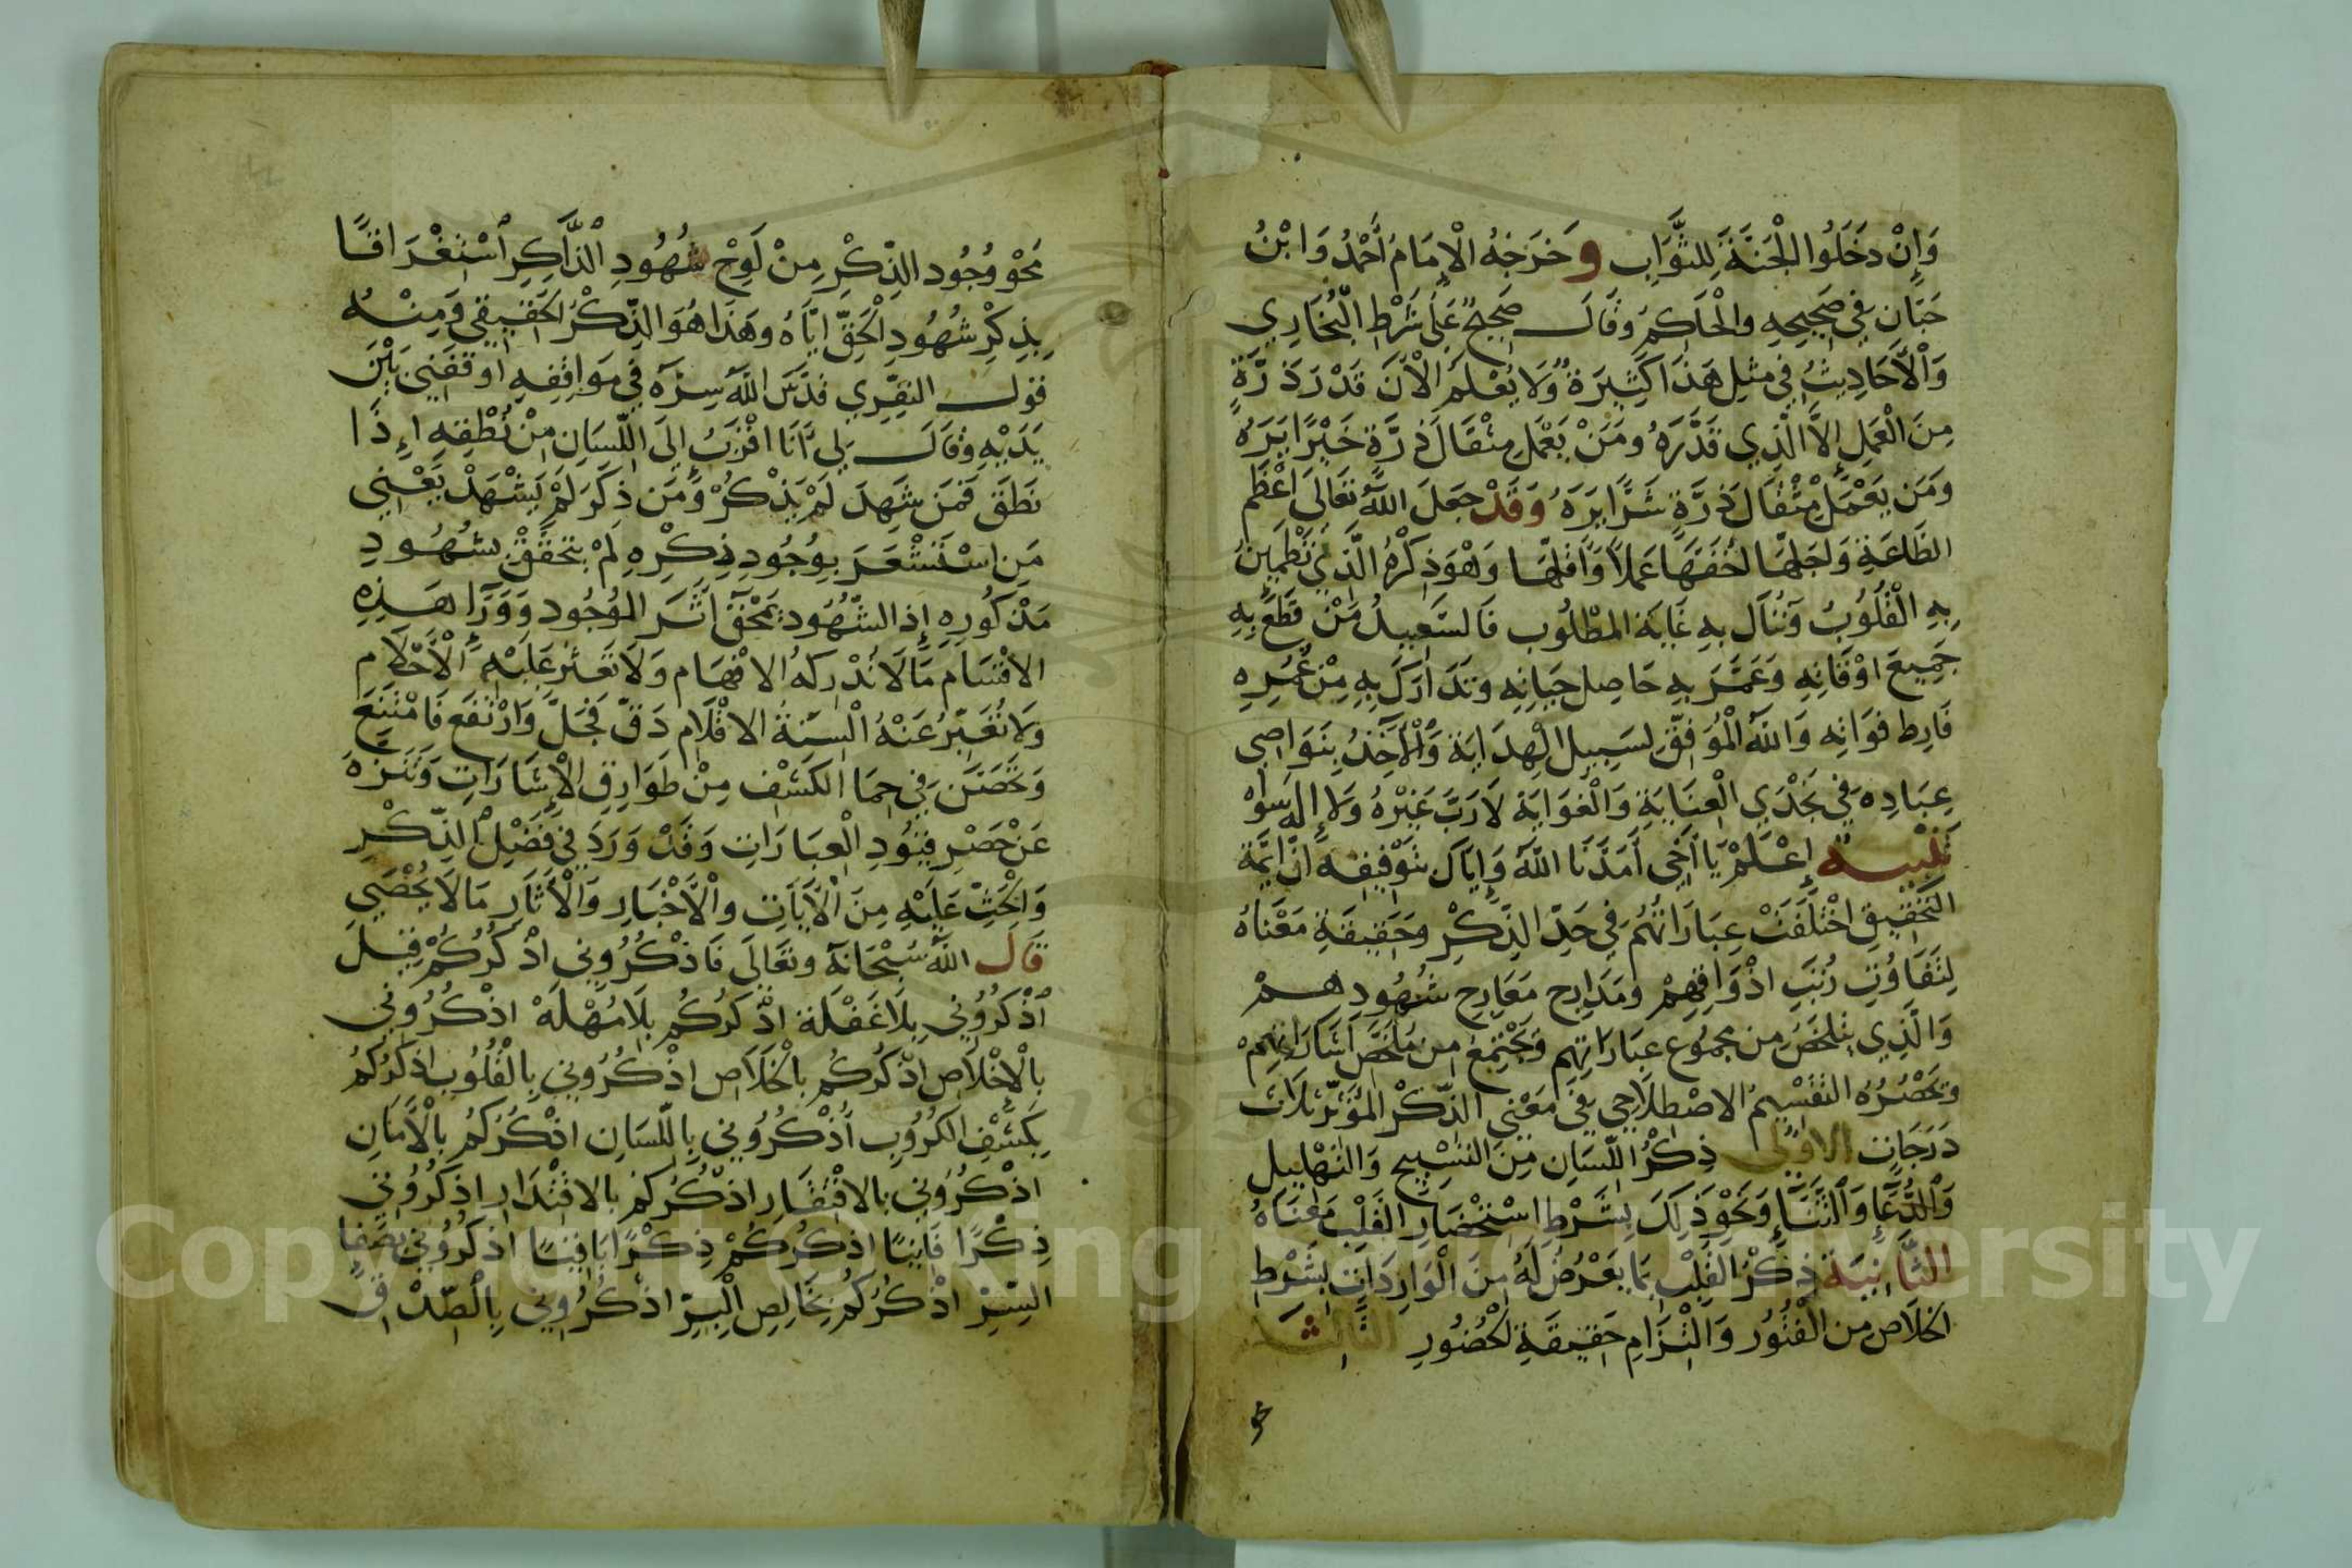 وَإِنْ دَخَلُوا الْجَنَّةَ لِلثَّوَابِ وَخَرَجَهُ الْإِمَامُ أَحْمَدُ وَابْنُ
حَبَّان فِي صَحِيحِهِ والْحَاكِمُ وَقَالَ صَحِيحٌ عَلَى شَرْطِ الْبُخَارِي
وَالْأَحَادِيثُ فِي مثِل هَذَا كَثِيرَةٌ وَلَا يُعْلَمُ الْآنَ قَدْرَ ذَرَّةٍ
مِنَ الْعَمَلِ إِلَّا الَّذِي قَدَّرَهُ ومَنْ يَعْمَل مِثْقَالَ ذَرَّةٍ خَيْرًا يَرَهُ
ومَن يَعْمَلْ مِثْقَالَ ذَرَّةٍ شَرًّا يَرَهُ وَقَدْ جعَلَ اللَّهُ تعَالَى اعْظَم
الطَاعَةِ وَاجَلِّهَا اخَفَّهَا عَمَلًا وَأَقلَّهَا وَهْوَ ذِكْرُهُ الَّذِي تَطْمَيِنُّ
بِهِ الْقُلُوبُ وَتُنَال بِهِ غَايَة المطْلُوب فَالسَّعِيدُ مَنْ قَطَعَ بِهِ
جَمِيعَ اوْقَاتِهِ وَعَمَّرَ بِهِ حَاصِل حَيَاتِهِ وتَدَارَكَ بِهِ مِنْ عُمُرِهِ
فَارِط فوَاتِه وَاللَّهُ الْمُوَفِّقُ لسَبِيلِ الْهِدَايَة وَالْآخِذُ بِنَوَاصِي
عِبَادِه فِي نَجْدَيِ الْعِنَايَةِ وَالْغوَايَة لَا رَبَّ غَيْرُهُ وَلَا إِلهَ سِوَاهُ
تَنْبِيه إِعْلَمْ يَا أَخِي أَمَدَّنَا اللَّهُ وَإِيَّاكَ بتَوْفِيقِهِ أَنَّ ايمَّة
التَحْقِيقِ اخْتَلَفَتْ عِبَارَاتُهُم فِي حَدِّ الذِّكْرِ وحَقِيقَةِ مَعْنَاهُ
لِتَفَاوُتِ رُتَبِ اذْوَاقِهِمْ وَمَدَارِج مَعَارِج شُهُودِهِمْ
وَالَّذِي يتلخَّصُ مِن مجمُوع عِبَارَاتِهِم وَيَجْتَمِعُ مِن مُلَخَّصِ اشَارَاتِهِمْ
وتحْصُرُهُ التَقْسِيمُ الاصْطِلَاحِي فِي مَعْنَى الذِّكْر المُؤَثِّر ثلَاث
دَرَجَات الاوْلَى ذِكْرُ اللِّسَانِ مِنَ التَسْبِيح وَالتَهْلِيل
وَالدُّعَاءِ وَالثَّنَاءِ وَنَحْوِ ذَلِكَ بِشَرْطِ اسْتِحْضَارِ القَلْبِ مَعْنَاهُ
الثَّانِيَة ذِكْرُ القَلْبِ بِمَا يَعْرُضُ لَهُ مِنَ الْوَارِدَاتِ بِشَرْطِ
الخلَاص مِن الْفُتُور وَالْتِزَامِ حَقِيقَةِ الحُضُورِ الثَّالِثَة
محو
مَحْوُ وُجُودِ الذِّكْرِ مِنْ لَوْحِ شُهُودِ الذَّاكِرِ اسْتِغْرَاقًا
بِذِكْرِ شُهُودِ الْحَقِّ ايَّاهُ وهَذَا هُوَ الذِّكْرُ الحَقِيقِي وَمِنْهُ
قوْلُ النفّرِي قدَّسَ اللَّهُ سِرَّهُ فِي موَاقِفِهِ اوْقَفَنِي بَيْنَ
يَدَيْهِ وَقَالَ لِي أَنَا اقْرَبُ إِلَى اللِّسَانِ مِنْ نُطْقِهِ إِذَا
نَطَقَ فَمَن شَهِدَ لَمْ يَذْكُرْ وَمَن ذكَرَ لَمْ يَشْهَدْ يَعْنِي
مَنِ اسْتَشْعَرَ بِوُجُودِ ذِكْرِهِ لَمْ يتحَقَّقْ بِشُهُودِ
مَذْكُورِهِ إِذِ الشُّهُود يَمْحَقُ أَثَرَ الْوُجُود وَوَرَاءَ هَذِهِ
الاقْسَام مَا لَا تُدْرِكهُ الافهَام وَلَا تَعْثر عَلَيْهِ الْأَحْلَام
وَلَا تُعَبِّرُ عَنْهُ الْسِنَةُ الاقْلَام دَقَّ فَجَلَّ وَارْتَفَع فَامْتَنَعَ
وَتحَصَّنَ فِي حِمَا الكَشْفِ مِنْ طَوَارِقِ الْإِشَارَاتِ وَتَنَزَّهَ
عَنْ حَصْرِ قيُودِ الْعِبَارَاتِ وَقَدْ وَرَدَ فِي فَضْلِ الذِّكْرِ
وَالحَثِّ عَلَيْهِ مِنَ الْآيَاتِ والْأَخْبَار وَالْأَثَارِ مَا لَا يُحْصَى
قَالَ اللَّهُ سُبْحَانَهُ وتعَالَى فَاذْكُرُونِي اذْكُرْكُمْ قِيلَ
اذْكُرُونِي بِلَا غَفْلَة اذْكُرْكُم بِلَا مُهْلَةْ اذْكُرُونِي
بِالْإِخْلَاصِ اذْكُرْكُم بِالْخَلَاصِ اذْكُرُونِي بِالْقُلُوبِ اذكُرْكُم
بِكَشْفِ الكُرُوبِ أُذْكُرُونِي بِاللِّسَانِ اذْكُرْكُم بِالْأَمَانِ
اذْكُرُونِي بالافْتِقَارِ اذْكُرْكُم بالاقْتِدَارِ اذكُرُونِي
ذِكْرًا فَانِيًا اذكُرْكُمْ ذِكْرًا بَاقِيًا اذكُرُونِي بِصَفَا
السِّرِّ اذْكُرْكُم بِخَالِصِ الْبِرِّ اذْكُرُونِي بِالْصِّدْقِ
Copyright © King Saud University